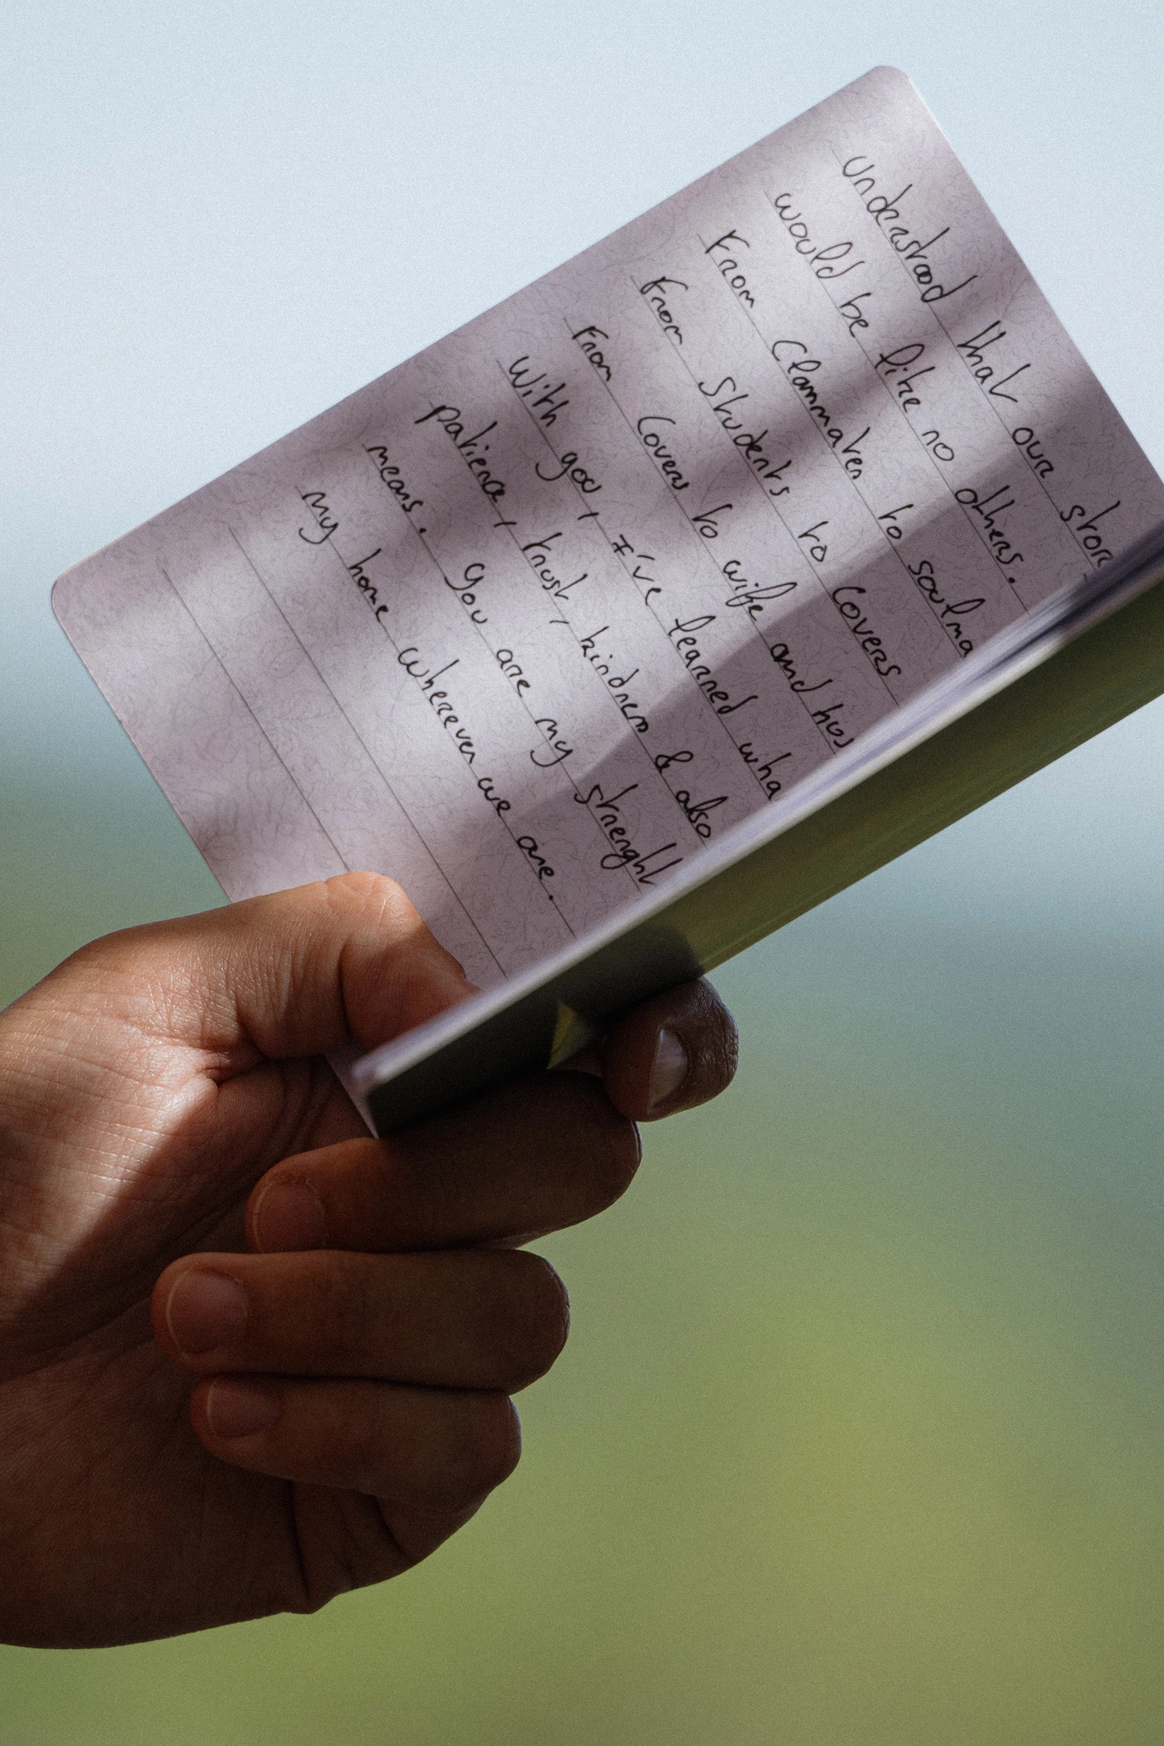 understood that our stor
would be like no others.
From Classmates to soulma
From Students to Covers
From Covers to wife and hus
With you, I've learned wha
patience, trust, kindness & also
means. you are my strenght
my home wherever we are.